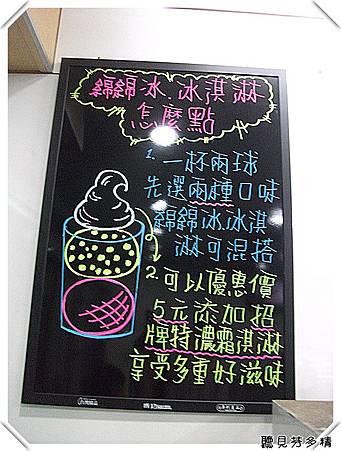 綿綿冰.冰淇淋
怎麼點
1.一杯兩球
先選兩種口味
綿綿冰.冰淇
淋可混搭
2.可以優惠價
5元添加招
牌特濃霜淇淋
享受多重好滋味
聽見芬多精